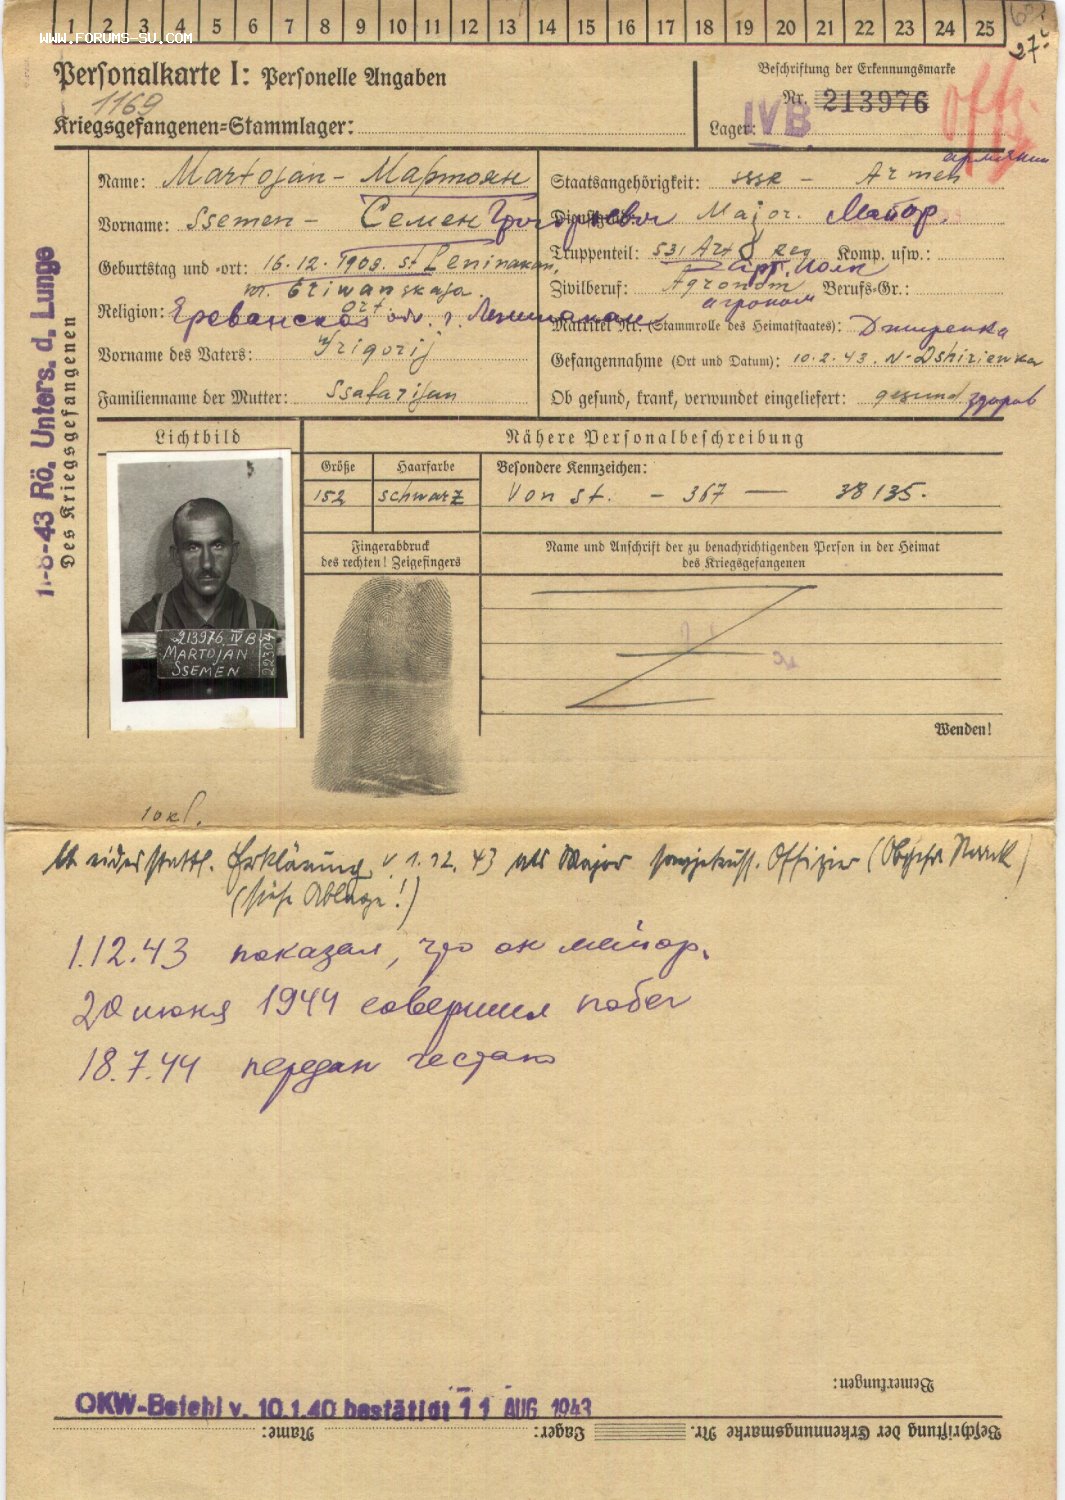 1 2 3 4 5 6 7 8 9 10 11 12 13 14 15 16 17 18 19 20 21 22 23 24 25
WWW.FORUMS-SU.COM
27.
Personalkarte I: Personelle Angaben
Beschriftung der Erkennungsmarke
1169
Nr. 213976
Kriegsgefangenen=Stammlager:
Lager: IVB
Offz.
Name: Martojan – Мартоян
Staatsangehörigkeit: SSSR – Armen
армянин
Vorname: Ssemen – Семен Григорьевич
Dienstgrad: Major. Майор.
Geburtstag und =ort: 16.12.1903. St Leninakan,
Truppenteil: 531 Art Reg Komp. usw.:
арт. полк
kr. Eriwanskaja.
Zivilberuf: Agronom Berufs-Gr.:
агроном
Religion: ort.
Ереванской обл. г. Ленинакан
Matrikel Nr. (Stammrolle des Heimatstaates): Джиренка
Vorname des Vaters: Grigorij
Gefangennahme (Ort und Datum): 10.2.43. N-Dshirienka
Familienname der Mutter: Ssafarijan
Ob gesund, krank, verwundet eingeliefert: gesund здоров
11-8-43 Rö. Unters. d. Lunge
Des Kriegsgefangenen
Lichtbild
Nähere Personalbeschreibung
Größe Haarfarbe Besondere Kennzeichen:
152 schwarz Von St. – 367 — 38135.
Fingerabdruck
des rechten! Zeigefingers
Name und Anschrift der zu benachrichtigenden Person in der Heimat
des Kriegsgefangenen
213976 IV B
MARTOJAN
SSEMEN
Wenden!
10 кл.
lt eidesstattl. Erklärung v. 1.12.43 als Major sowjetruss. Offizier
(siehe Ablage!)
1.12.43 показал, что он майор.
20 июня 1944 совершил побег
18.7.44 передан гестапо
Bemerkungen:
OKW-Befehl v. 10.1.40 bestätigt 11 AUG 1943
Beschriftung der Erkennungsmarke Nr. Lager: Name: